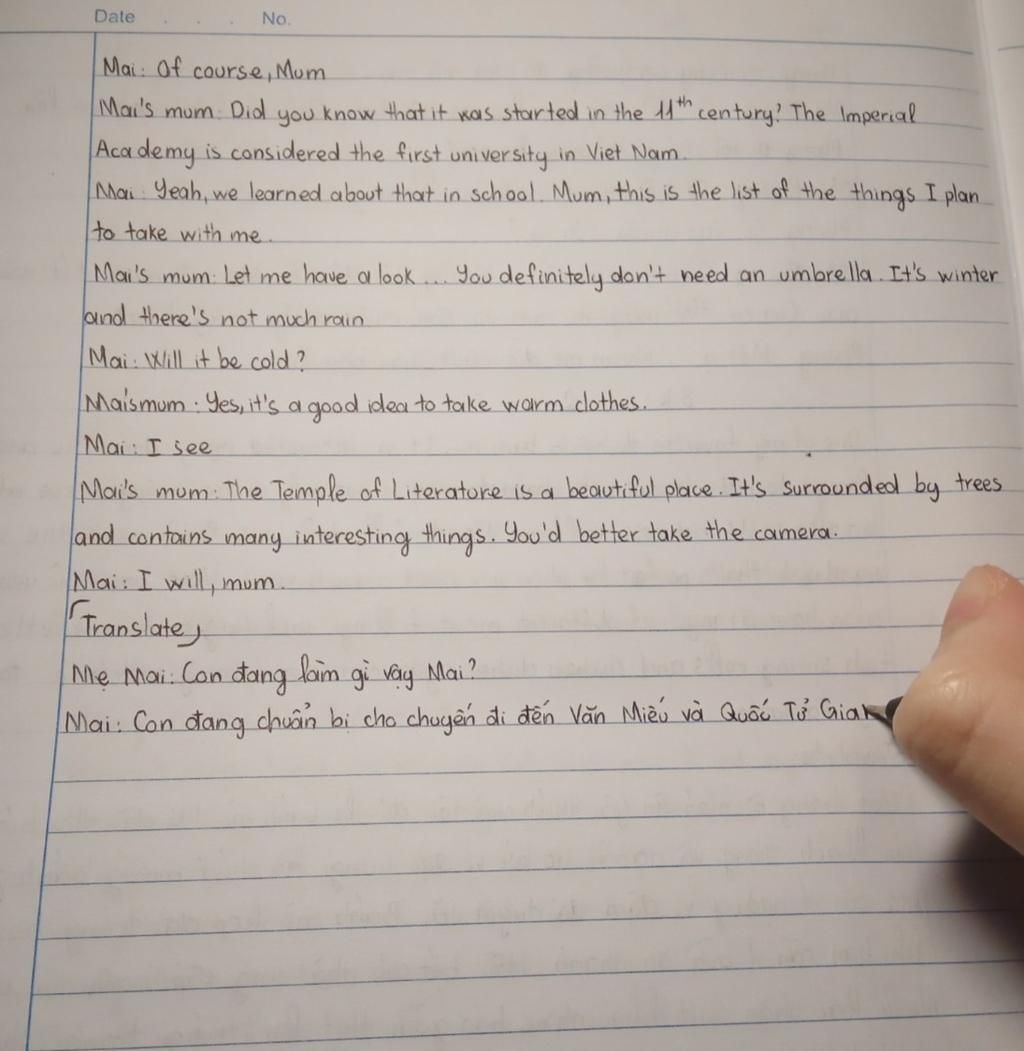 Date . . . No.
Mai: Of course, Mum
Mai's mum: Did you know that it was started in the 11th century? The Imperial
Academy is considered the first university in Viet Nam.
Mai: Yeah, we learned about that in school. Mum, this is the list of the things I plan
to take with me.
Mai's mum: Let me have a look ... You definitely don't need an umbrella. It's winter
and there's not much rain
Mai: Will it be cold?
Mai's mum: Yes, it's a good idea to take warm clothes.
Mai: I see
Mai's mum: The Temple of Literature is a beautiful place. It's surrounded by trees
and contains many interesting things. You'd better take the camera.
Mai: I will, mum.
「Translate」
Mẹ Mai: Con đang làm gì vậy Mai?
Mai: Con đang chuẩn bị cho chuyến đi đến Văn Miếu và Quốc Tử Gia